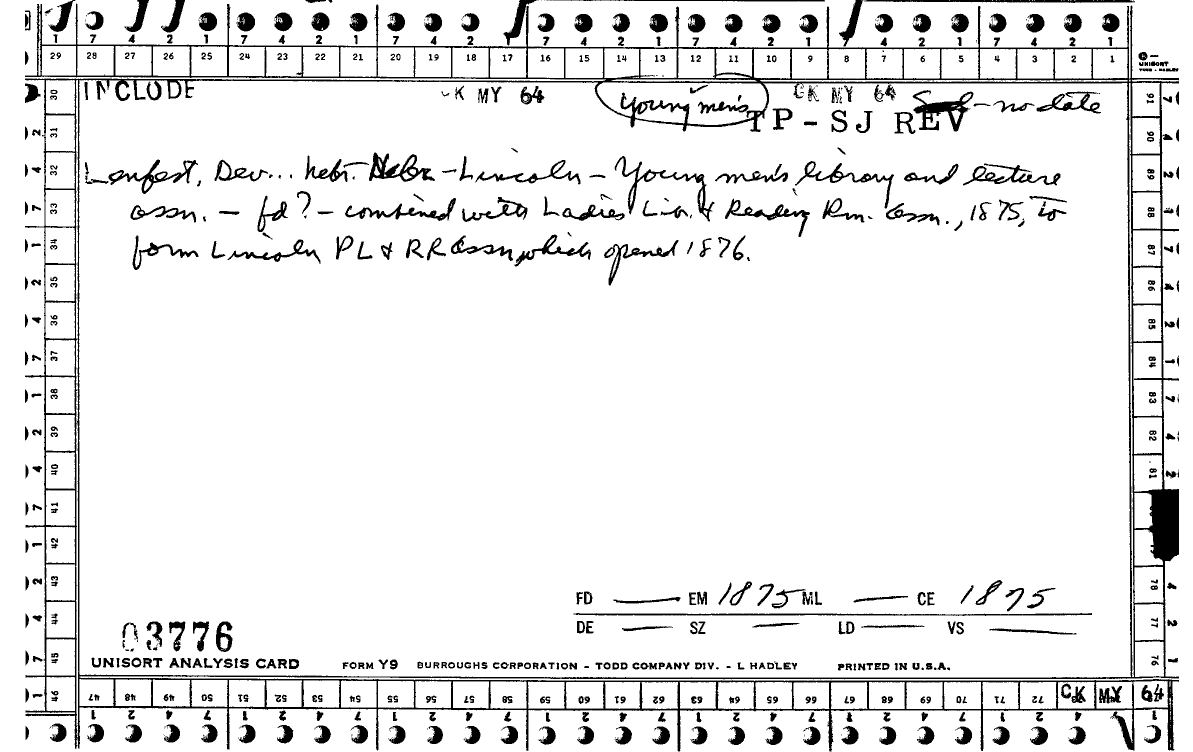 1 7 4 2 1 7 4 2 1 7 4 2 1 7 4 2 1 7 4 2 1 7 4 2 1 7 4 2 1
29 28 27 26 25 24 23 22 21 20 19 18 17 16 15 14 13 12 11 10 9 8 7 6 5 4 3 2 1
UNISORT
TODD - HADLEY
INCLUDE CK MY 64 Young men's CK MY 64 - no date
TP - SJ REV
Lenfest, Dev... Nebr. Nebr - Lincoln - Young men's library and lecture
assn. - fd? - combined with Ladies Lib. & Reading Rm. Assn., 1875, to
form Lincoln PL & RR Assn, which opened 1876.
30 31 32 33 34 35 36 37 38 39 40 41 42 43 44 45 46
2 4 7 1 2 4 7 1 2 4 7 1 2 4 7 1
91 90 89 88 87 86 85 84 83 82 81 78 77 76
FD — EM 1875 ML — CE 1875
DE — SZ — LD — VS —
03776
UNISORT ANALYSIS CARD FORM Y9 BURROUGHS CORPORATION - TODD COMPANY DIV. - L HADLEY PRINTED IN U.S.A.
47 48 49 50 51 52 53 54 55 56 57 58 59 60 61 62 63 64 65 66 67 68 69 70 71 72 CK MY 64
1 2 4 7 1 2 4 7 1 2 4 7 1 2 4 7 1 2 4 7 1 2 4 7 1 2 4 7 1